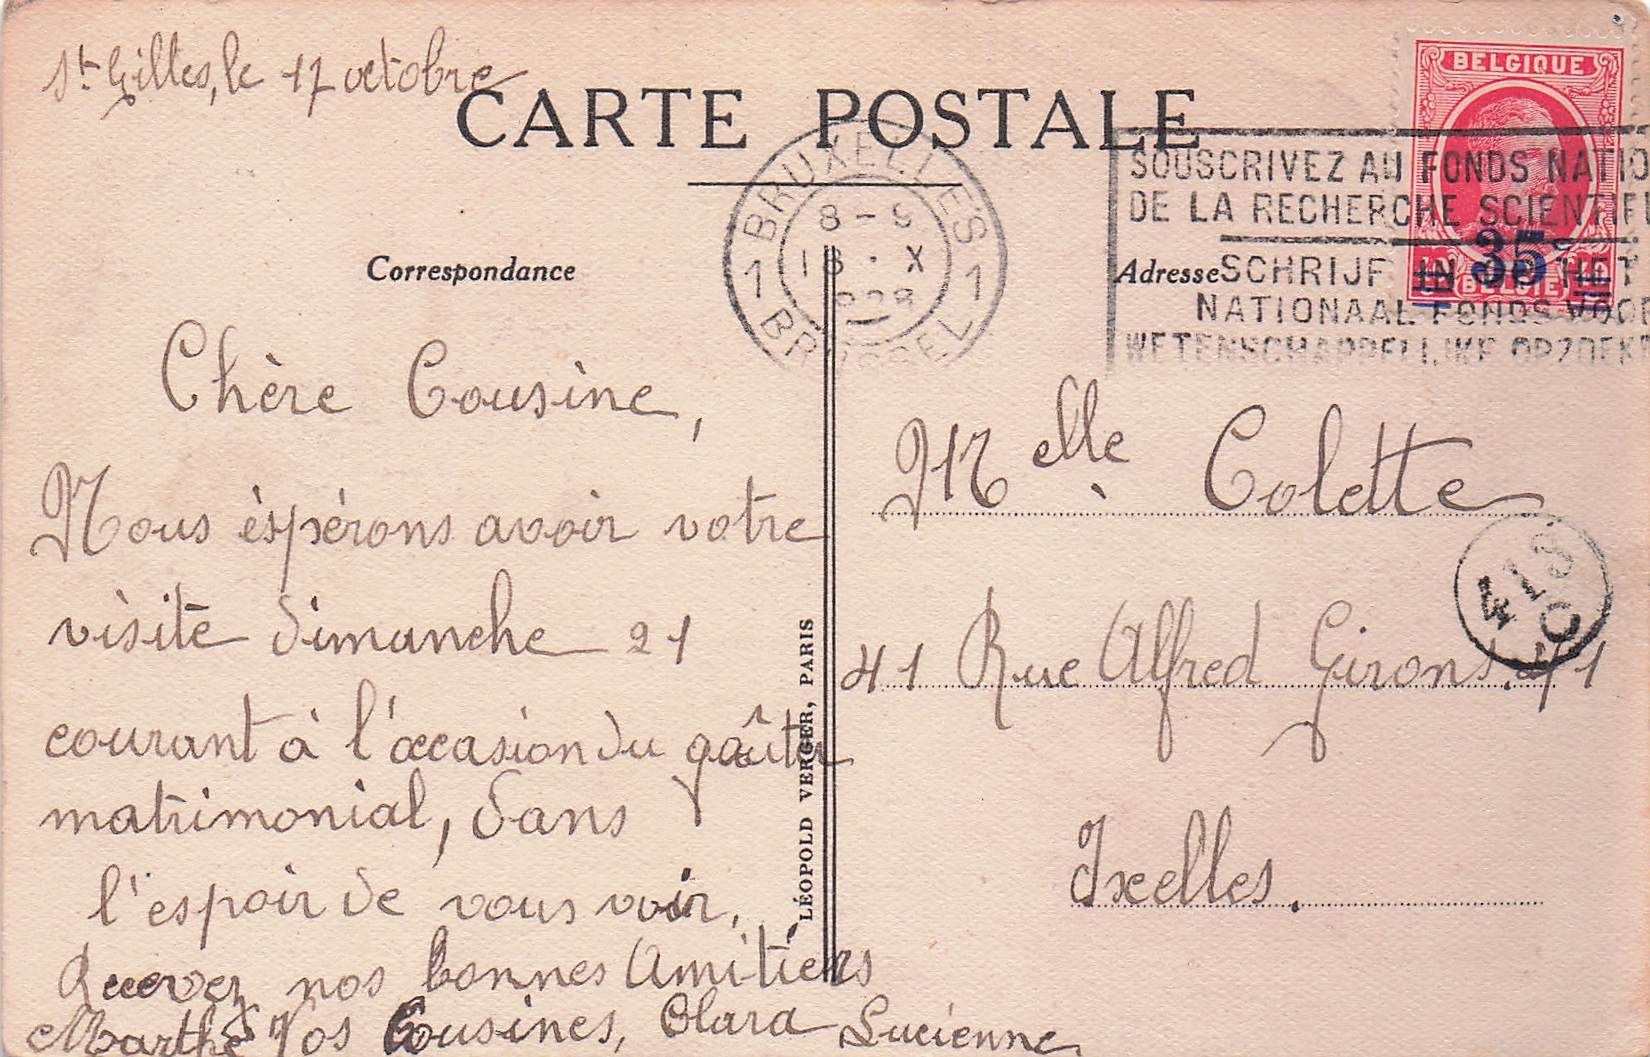 St Gilles, le 17 octobre
CARTE POSTALE
BELGIQUE
35c
BELGIË
BRUXELLES
8-9
18 · X
1928
1 1
BRUSSEL
SOUSCRIVEZ AU FONDS NATIO
DE LA RECHERCHE SCIENTIF
SCHRIJF IN OP HET
NATIONAAL FONDS VOOR
WETENSCHAPPELIJKE OPZOEK
Correspondance
Adresse
Chère Cousine,
Nous èspérons avoir votre
visite dimanche 21
courant à l'occasion du goûter
matrimonial, dans
l'espoir de vous voir,
Recevez nos bonnes Amitiés
Vos Cousines, Clara Lucienne
Marthe
LÉOPOLD VERGER, PARIS
Melle Colette
41 Rue Alfred Girons. 41
Ixelles.